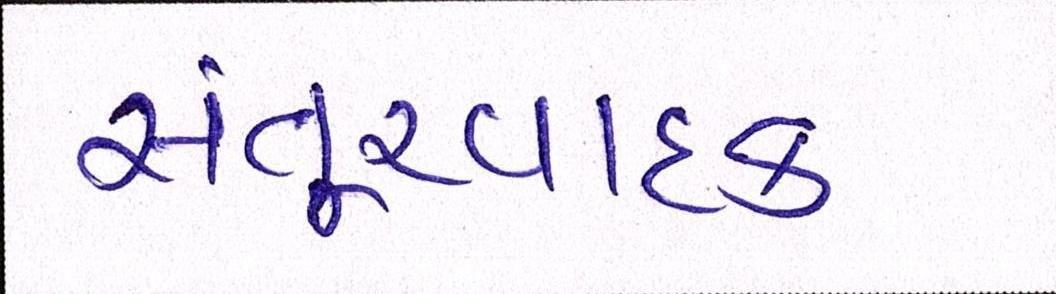 સંતૂરવાદક